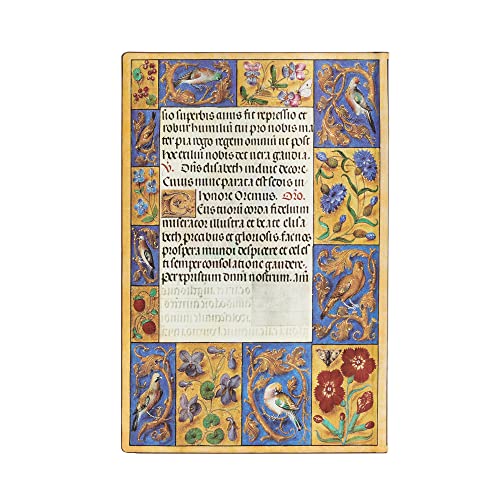 sio superbis anus fit repressio et
robur humiliũ tu pro nobis ma
ter pia rego regem omniũ ut post
hec exiliũ nobis det uera gaudia.
V. Dñs elisabeth induit decore.
Cuius nunc parata est sedis in
honore Oremus. Oro.
Eus tuorũ corda fidelium
miserator illustra et beate elisa
beth precabus et gloriosis. fac nos
prospera mundi despicere et celes
ti semper consolatione gaudere.
Per xpistum dñm nostrum. am